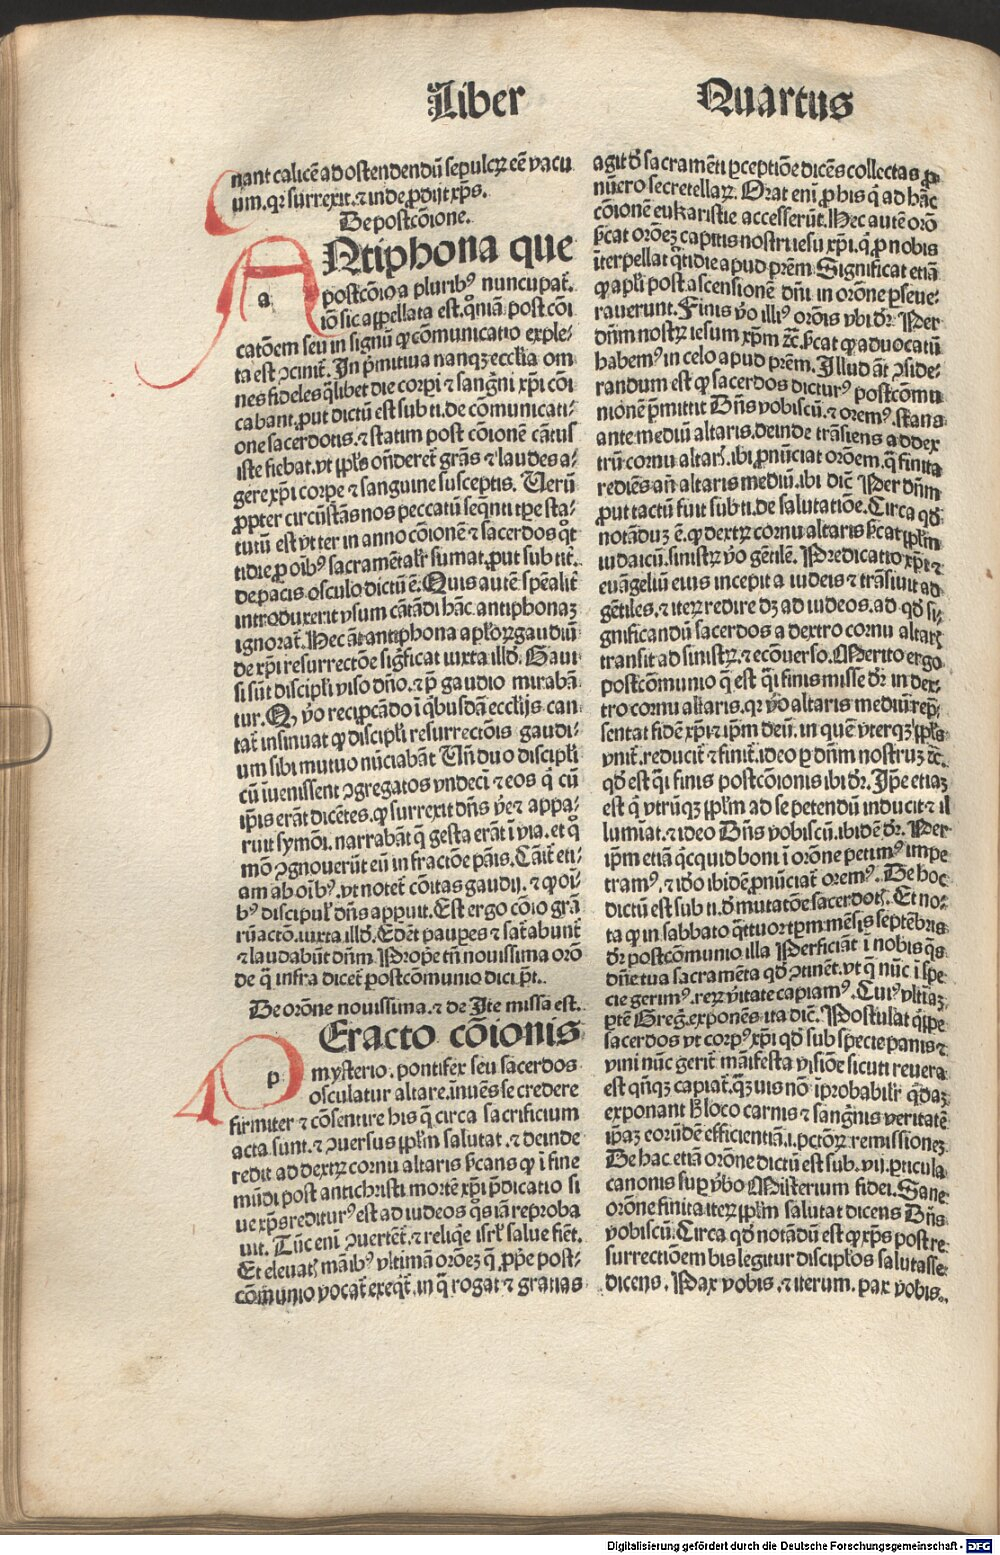 Liber Quartus
nant calicē ad ostendendū sepulcꝝ eē vacu
um. qꝛ surrexit. ⁊ inde ꝓdijt xp̄s.
De postcōione.
ANtiphona que
postcōio a pluribꝰ nuncupat̄.
iō sic appellata est. qm̄ post cōi
catōem seu in signū ꝙ cōmunicatio exple⸗
ta est ꝯcinit̄. In pͥmitiua nanqꝫ ecclīa om
nes fideles qͣlibet die corpͥ ⁊ sangͥni xp̄i cōi
cabant. ꝓut dictū est sub ti. de cōmunicati⸗
one sacerdotis. ⁊ statim post cōionē cātus
iste fiebat. vt pp̄ls on̄deret̄ grās ⁊ laudes a⸗
gere xp̄i corpe ⁊ sanguine susceptis. Uerū
ꝓpter circūstātias nos peccatū seqn̄ti tp̄e sta⸗
tutū est vt ter in anno cōionē ⁊ sacerdos qͦt
tidie ꝓ oībꝰ sacramētalr̄ sumat. ꝓut sub tit̄.
de pacis osculo dictū ē. Quis autē spēalit̄
introduxerit vsum cātādi hāc antiphonaꝫ
ignorat̄. Hec āt antiphona apl̄oꝝ gaudiū
de xp̄i resurrectōe sigͥficat iuxta illd̄. Gaui
si sūt discipli viso dn̄o. ⁊ p̄ gaudio mirabā
tur. Q, v̄o reciprocādo ī qͥbusdā ecclijs can⸗
tat̄ insinuat ꝙ discipli resurrectōis gaudi⸗
um sibi mutuo nūciabāt Un̄ duo discipli
cū iuenissent ꝯgregatos vndecī ⁊ eos qͥ cū
ip̄is erāt dicētes. ꝙ surrexit dn̄s ve̅ ⁊ appa⸗
ruit symōi. narrabāt qͣ gesta erāt ī via. et qͦ
mō ꝯgnouerūt eū in fractōe pāis. Cāit̄ eti⸗
am ab oībꝰ. vt notet̄ cōitas gaudij. ⁊ ꝙ oī⸗
bꝰ discipul̄ dn̄s apparuit. Est ergo cōio grā
rū actō. iuxta illd̄. Edēt pauꝑes ⁊ sat̄abunt̄
⁊ laudabūt dn̄m. Prope tn̄ nouissima orō
de qͣ infra dicet̄ postcōmunio dici pt̄.
De orōne nouissima. ⁊ de Ite missa est.
PEracto cōionis
mysterio. pontifex seu sacerdos
osculatur altare. inuēs se credere
firmiter ⁊ cōsentire his q̄ circa sacrificium
acta sunt. ⁊ ꝯuersus pp̄lm salutat. ⁊ deinde
redit ad dextꝝ cornu altaris sͥcans ꝙ ī fine
mūdi post antichristi mortē xp̄i p̄dicatio si
ue xp̄s rediturꝰ est ad iudeos qͦs iā reproba
uit. Tūc enī ꝯuertēt̄. ⁊ reliqͥe isrl̄ salue fiēt.
Et eleuatꝭ māibꝰ vltimā orōeꝫ q̄ ꝓpe post⸗
cōmunio vocat̄ exeqͥt̄. in qͣ rogat ⁊ gratias
agit d̄ sacramēti ꝑceptiōe dicēs collectas ꝓ
nūero secretellaꝝ. Orat enī ꝓ his qͥ ad hāc
cōionē eukaristie accesserūt. Hec autē orō
sͥcat orōeꝫ capitis nostri iesu xp̄i. qͥ ꝓ nobis
īterpellat qͦtidie apud prēm. Significat etiā
ꝙ apl̄i post ascensionē dn̄i in orōne ꝑseue⸗
rauerunt. Finis v̄o illiꝰ orōis vbi dr̄. Per
dn̄m nostꝝ iesum xp̄m ⁊c̄. sͥcat ꝙ aduocatū
habemꝰ in celo apud prēm. Illud āt ꝯside⸗
randum est ꝙ sacerdos dicturꝰ postcōmu
nionē pͥmittit Dn̄s vobiscū. ⁊ oremꝰ. stans
ante mediū altaris. deinde trāsiens ad dex
trū cornu altaꝝ. ibi ꝓnūciat orōem. qͣ finita
rediēs an̄ altaris mediū. ibi dic̄ Per dn̄m
ꝓut tactū fuit sub ti. de salutatiōe. Circa qd̄
notāduꝫ ē. ꝙ dextꝝ cornu altaris sͥcat pp̄lm
iudaicū. sinistꝝ v̄o gētilē. Predicatio xp̄i ⁊
euāgeliū eius incepit a iudeis ⁊ trāsiuit ad
gētiles. ⁊ iteꝝ redire dꝫ ad iudeos. ad qd̄ si⸗
gnificandū sacerdos a dextro cornu altarꝭ
transit ad sinistꝝ. ⁊ ecōuerso. Merito ergo
postcōmunio q̄ est qͣi finis misse dr̄ in dex⸗
tro cornu altaris. qꝛ v̄o altaris mediū rep̄⸗
sentat fidē xp̄i ⁊ ip̄m deū. in quē vterqꝫ pp̄ls
vnit̄. reducit̄ ⁊ finit̄. ideo ꝑ dn̄m nostruꝫ ⁊c̄.
qd̄ est qͣi finis postcōionis ibi dr̄. Ip̄e etiaꝫ
est qͥ vtrūqꝫ pp̄lm ad se petendū inducit ⁊ il
lumiat. ⁊ ideo Dn̄s vobiscū. ibidē dr̄. Per
ip̄m etiā qͥcquid boni ī orōne petimꝰ impe
tramꝰ. ⁊ id̄o ibidē ꝓnūciat̄ oremꝰ. De hoc
dictū est sub ti. d̄ mutatōe sacerdotꝭ. Et no⸗
ta ꝙ in sabbato qͣttuor tꝑm mēsis septēbris
dr̄ postcōmunio illa Perficiāt ī nobis qͣs
dn̄e tua sacramēta qd̄ ꝯtinēt. vt q̄ nūc ī spe
cie gerimꝰ. reꝝ v̄itate capiamꝰ. Cuiꝰ vltiaꝫ
ꝑtē Greḡ. exponēs ita dic̄. Postulat qͥppe
sacerdos vt corpꝰ xp̄i qd̄ sub specie panis ⁊
vini nūc gerit̄ māifesta visiōe sicuti reuera
est qn̄qꝫ capiat̄. qͣꝫuis nō īprobabilr̄ qͥdaꝫ
exponant hͦ loco carnis ⁊ sangͥnis veritatē
ip̄aꝫ eorūdē efficientiā. i. pctōꝝ remissioneꝫ
De hac etiā orōne dictū est sub. vij. ꝑticula
canonis suꝑ v̄bo Misterium fidei. Sane
orōne finita iteꝝ pp̄lm salutat dicens Dn̄s
vobiscū. Circa qd̄ notādū est ꝙ xp̄s post re⸗
surrectiōem bis legitur discipl̄os salutasse
dicens. Pax vobis. ⁊ iterum. pax vobis.
Digitalisierung gefördert durch die Deutsche Forschungsgemeinschaft - DFG